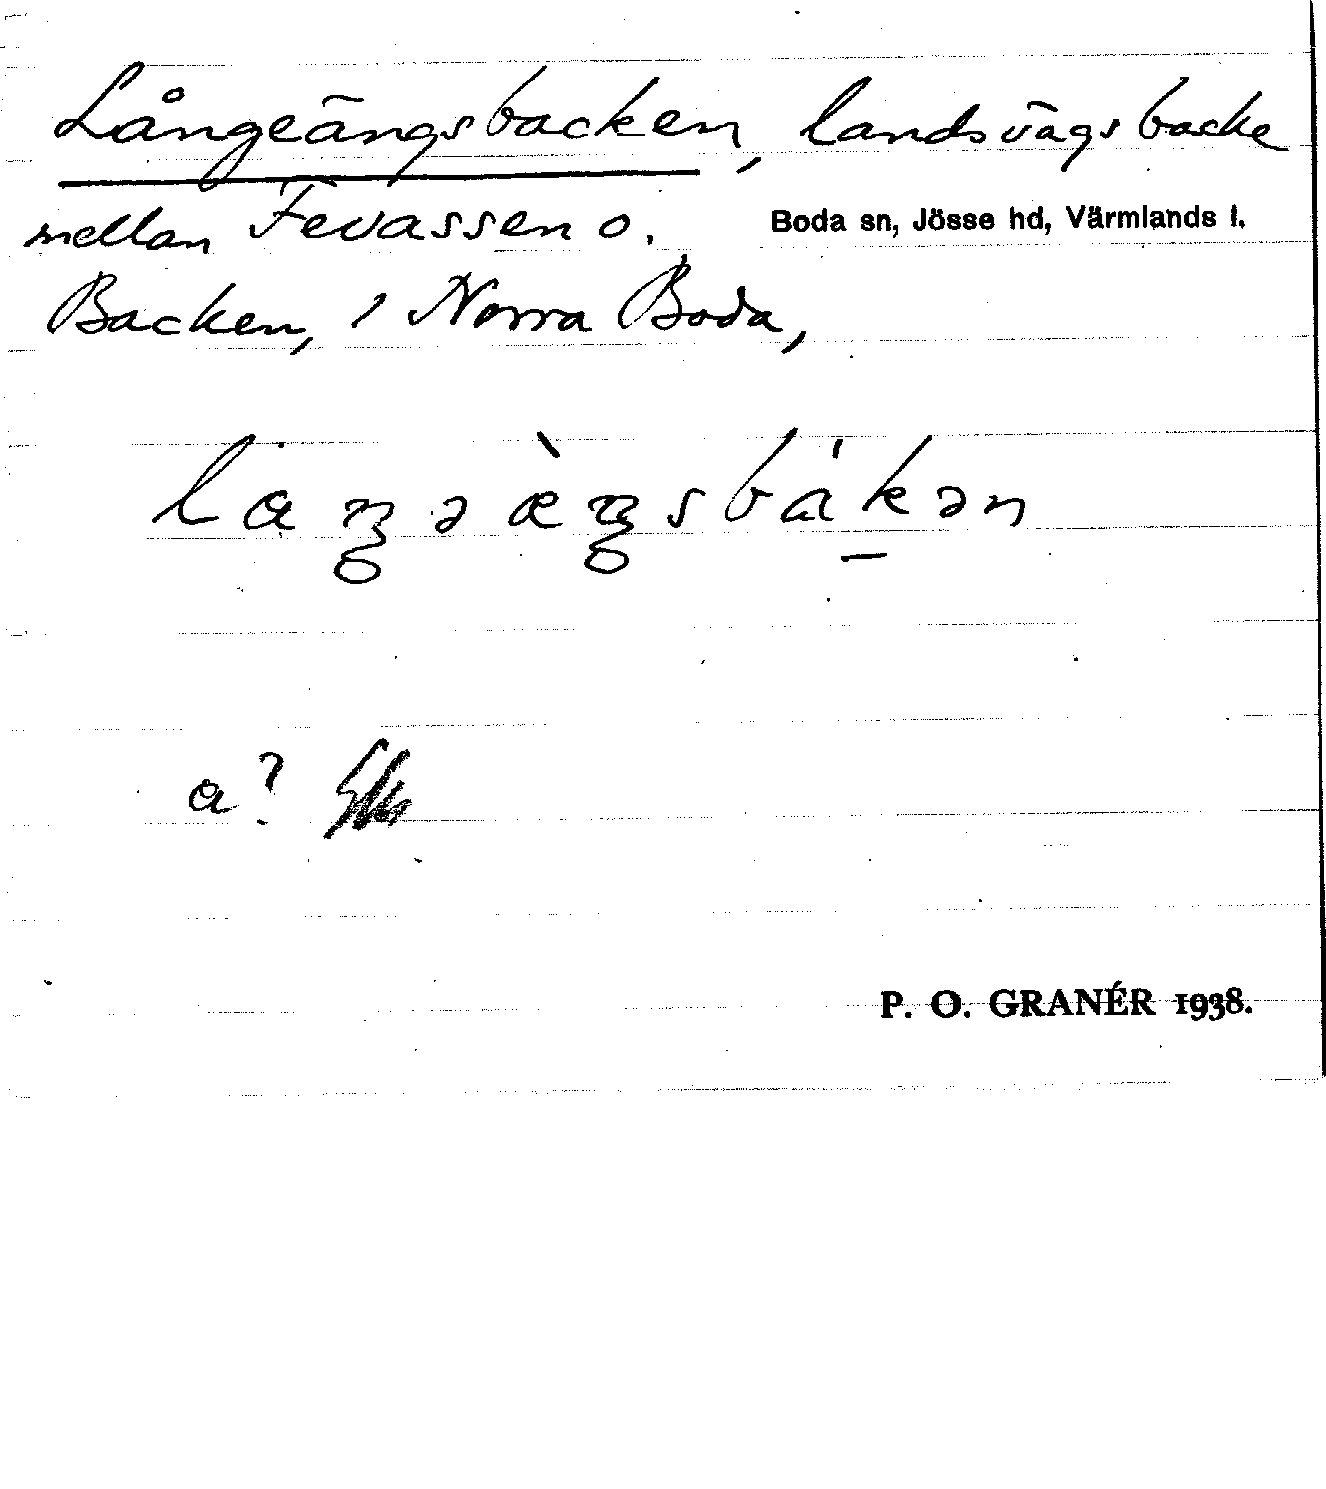 Långeängsbacken, landsvägsbacke
mellan Fevassen o.
Boda sn, Jösse hd, Värmlands l.
Backen, i Norra Boda,
laŋəæ̀ŋsbákən
a?
P. O. GRANÉR 1938.